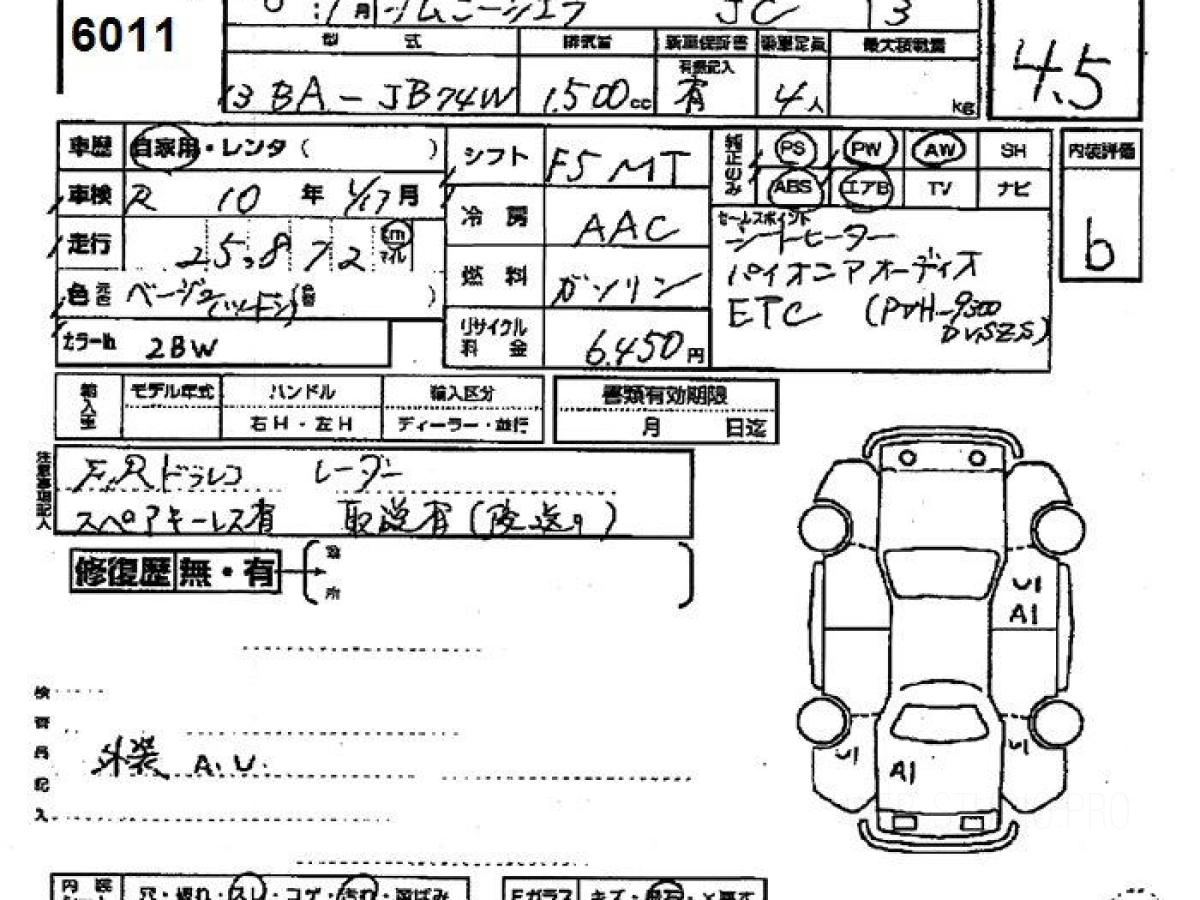 6011
月 JC 13
型式 排気量 新車保証書 乗車定員 最大積載量
有無記入
3BA-JB74W 1,500cc 有 4人 kg
4.5
車歴 自家用・レンタ( )
シフト F5 MT
純正のみ PS PW AW SH
ABS エアB TV ナビ
内装評価
b
車検 R 10年 月
冷房 AAC
走行 25,872 km マイル
セールスポイント
シートヒーター
パイオニアオーディオ
ETC
燃料 ガソリン
色 元色 ベージュ
カラーNo 2BW
リサイクル料金 6,450円
輸入車 モデル年式 ハンドル 輸入区分
右H・左H ディーラー・並行
書類有効期限
月 日迄
注意事項記入
F,Rドラレコ レーダー
スペアキーレス有 取説有(後送り)
修復歴 無・有
箇所
U1
A1
検査員記入
外装 A.U.
U1
A1
U1
内装 穴・破れ・スレ・コゲ・汚れ
Fガラス キズ・飛石